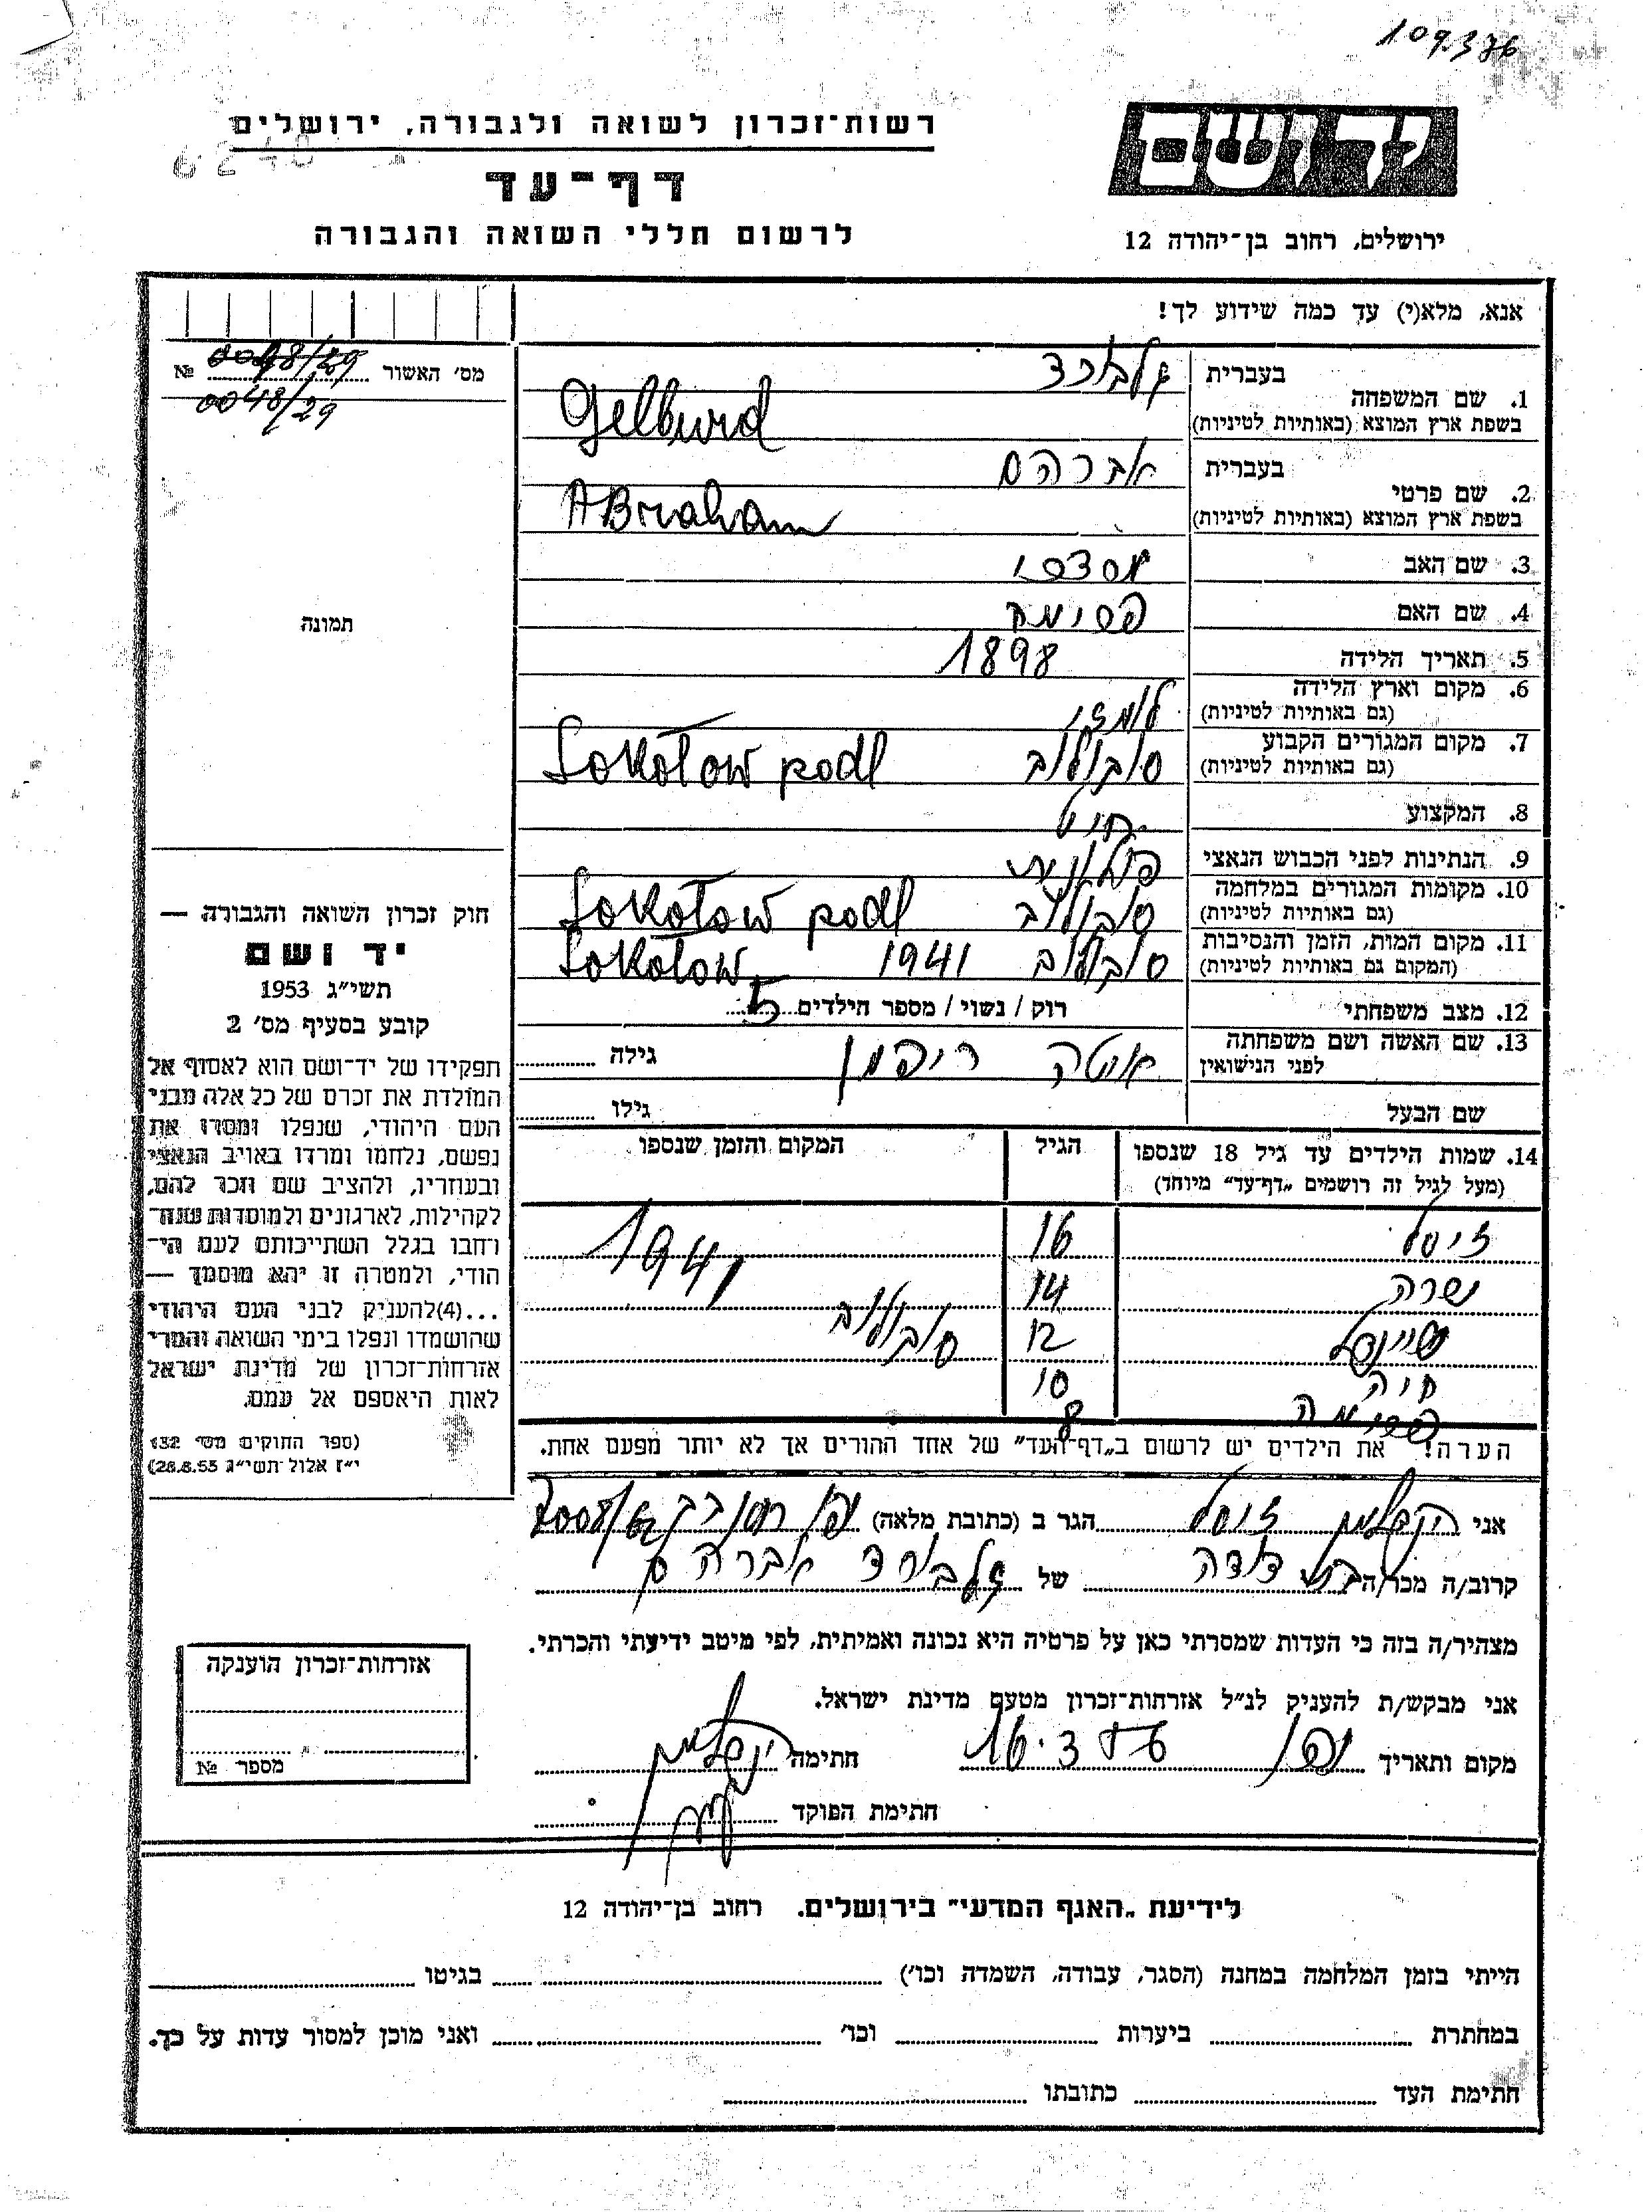 109.376
רשות־זכרון לשואה ולגבורה, ירושלים
דף־עד
לרשום חללי השואה והגבורה
יד ושם
ירושלים, רחוב בן־יהודה 12
אנא, מלא(י) עד כמה שידוע לך!
מס׳ האשור 0048/29 №
0048/29
תמונה
1. שם המשפחה בעברית גלבורד
בשפת ארץ המוצא (באותיות לטיניות) Gelburd
2. שם פרטי בעברית אברהם
בשפת ארץ המוצא (באותיות לטיניות) ABraham
3. שם האב
4. שם האם
5. תאריך הלידה 1898
6. מקום וארץ הלידה
(גם באותיות לטיניות)
7. מקום המגורים הקבוע סוקולוב Sokołow podl
(גם באותיות לטיניות)
8. המקצוע חיט
9. הנתינות לפני הכבוש הנאצי פולנית
10. מקומות המגורים במלחמה סוקולוב Sokołow podl
(גם באותיות לטיניות)
11. מקום המות, הזמן והנסיבות סוקולוב 1941 Sokołow
(המקום גם באותיות לטיניות)
12. מצב משפחתי רוק / נשוי / מספר הילדים 5
13. שם האשה ושם משפחתה לפני הנישואין ריפמן גילה
שם הבעל גילו
14. שמות הילדים עד גיל 18 שנספו הגיל המקום והזמן שנספו
(מעל לגיל זה רושמים „דף־עד״ מיוחד)
זיסל 16 1941
שרה 14
שיינדל 12 סוקולוב
חיה 10
8
הערה! את הילדים יש לרשום ב„דף־העד״ של אחד ההורים אך לא יותר מפעם אחת.
אני זיסל הגר ב (כתובת מלאה)
קרוב/ה מכר/ה בת דודה של גלבורד אברהם
מצהיר/ה בזה כי העדות שמסרתי כאן על פרטיה היא נכונה ואמיתית, לפי מיטב ידיעתי והכרתי.
אני מבקש/ת להעניק לנ״ל אזרחות־זכרון מטעם מדינת ישראל.
מקום ותאריך חתימה
חתימת הפוקד
חוק זכרון השואה והגבורה —
יד ושם
תשי״ג 1953
קובע בסעיף מס׳ 2
תפקידו של יד־ושם הוא לאסוף אל
המולדת את זכרם של כל אלה מבני
העם היהודי, שנפלו ומסרו את
נפשם, נלחמו ומרדו באויב הנאצי
ובעוזריו, ולהציב שם וזכר להם,
לקהילות, לארגונים ולמוסדות שנח־
רבו בגלל השתייכותם לעם הי־
הודי, ולמטרה זו יהא מוסמך —
...(4)להעניק לבני העם היהודי
שהושמדו ונפלו בימי השואה והמרי
אזרחות־זכרון של מדינת ישראל
לאות היאספם אל עמם.
(ספר החוקים מס׳ 132
י״ז אלול תשי״ג 28.8.53)
אזרחות־זכרון הוענקה
מספר №
לידיעת „האגף המדעי״ בירושלים, רחוב בן־יהודה 12
הייתי בזמן המלחמה במחנה (הסגר, עבודה, השמדה וכו׳) בגיטו
במחתרת ביערות וכו׳ ואני מוכן למסור עדות על כך.
חתימת העד כתובתו